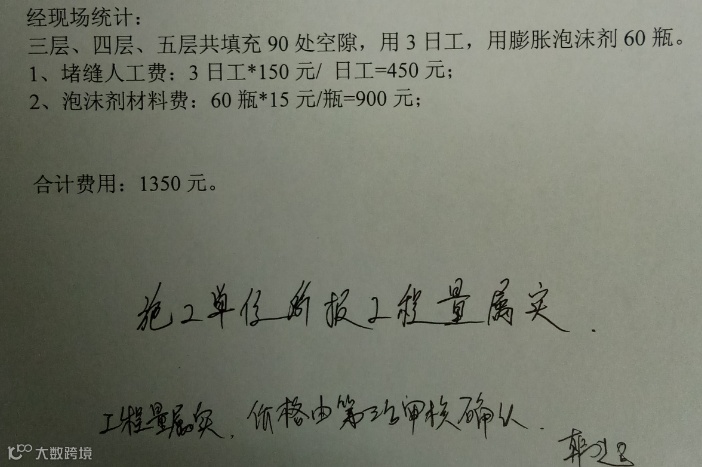 经现场统计：
三层、四层、五层共填充 90 处空隙，用 3 日工，用膨胀泡沫剂 60 瓶。
1、堵缝人工费：3 日工*150 元/ 日工=450 元；
2、泡沫剂材料费：60 瓶*15 元/瓶=900 元；
合计费用：1350 元。
施工单位所报工程量属实.
工程量属实，价格由第三方审核确认.
大数跨境